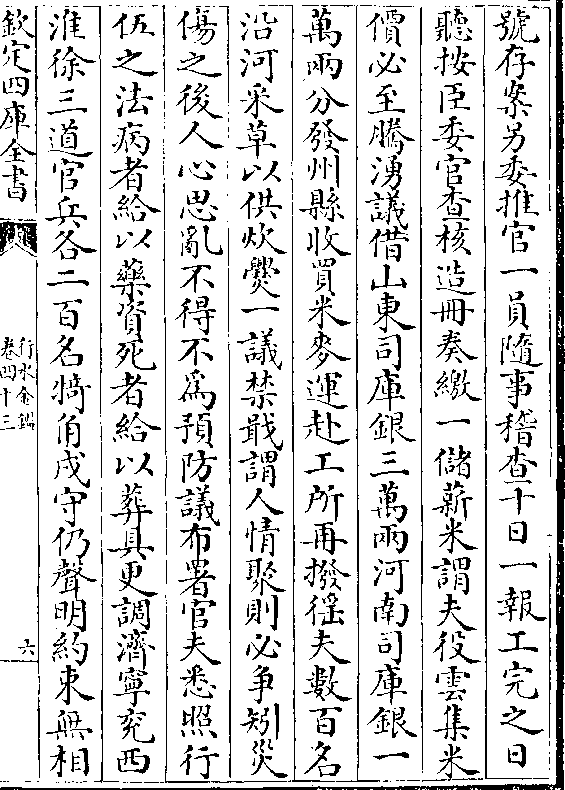 號存案另委推官一員隨事稽查十日一報工完之日
聽按臣委官查核造冊奏繳一儲薪米謂夫役雲集米
價必至騰湧議借山東司庫銀三萬兩河南司庫銀一
萬兩分發州縣收買米麥運赴工所再撥徭夫數百名
沿河采草以供炊爨一議禁戢謂人情聚則必爭矧災
傷之後人心思亂不得不為預防議布署官夫悉照行
伍之法病者給以藥資死者給以葬具更調濟寧兖西
淮徐三道官兵各二百名犄角戍守仍聲明約束無相
欽定四庫全書
行水金鑑
卷四十三
六